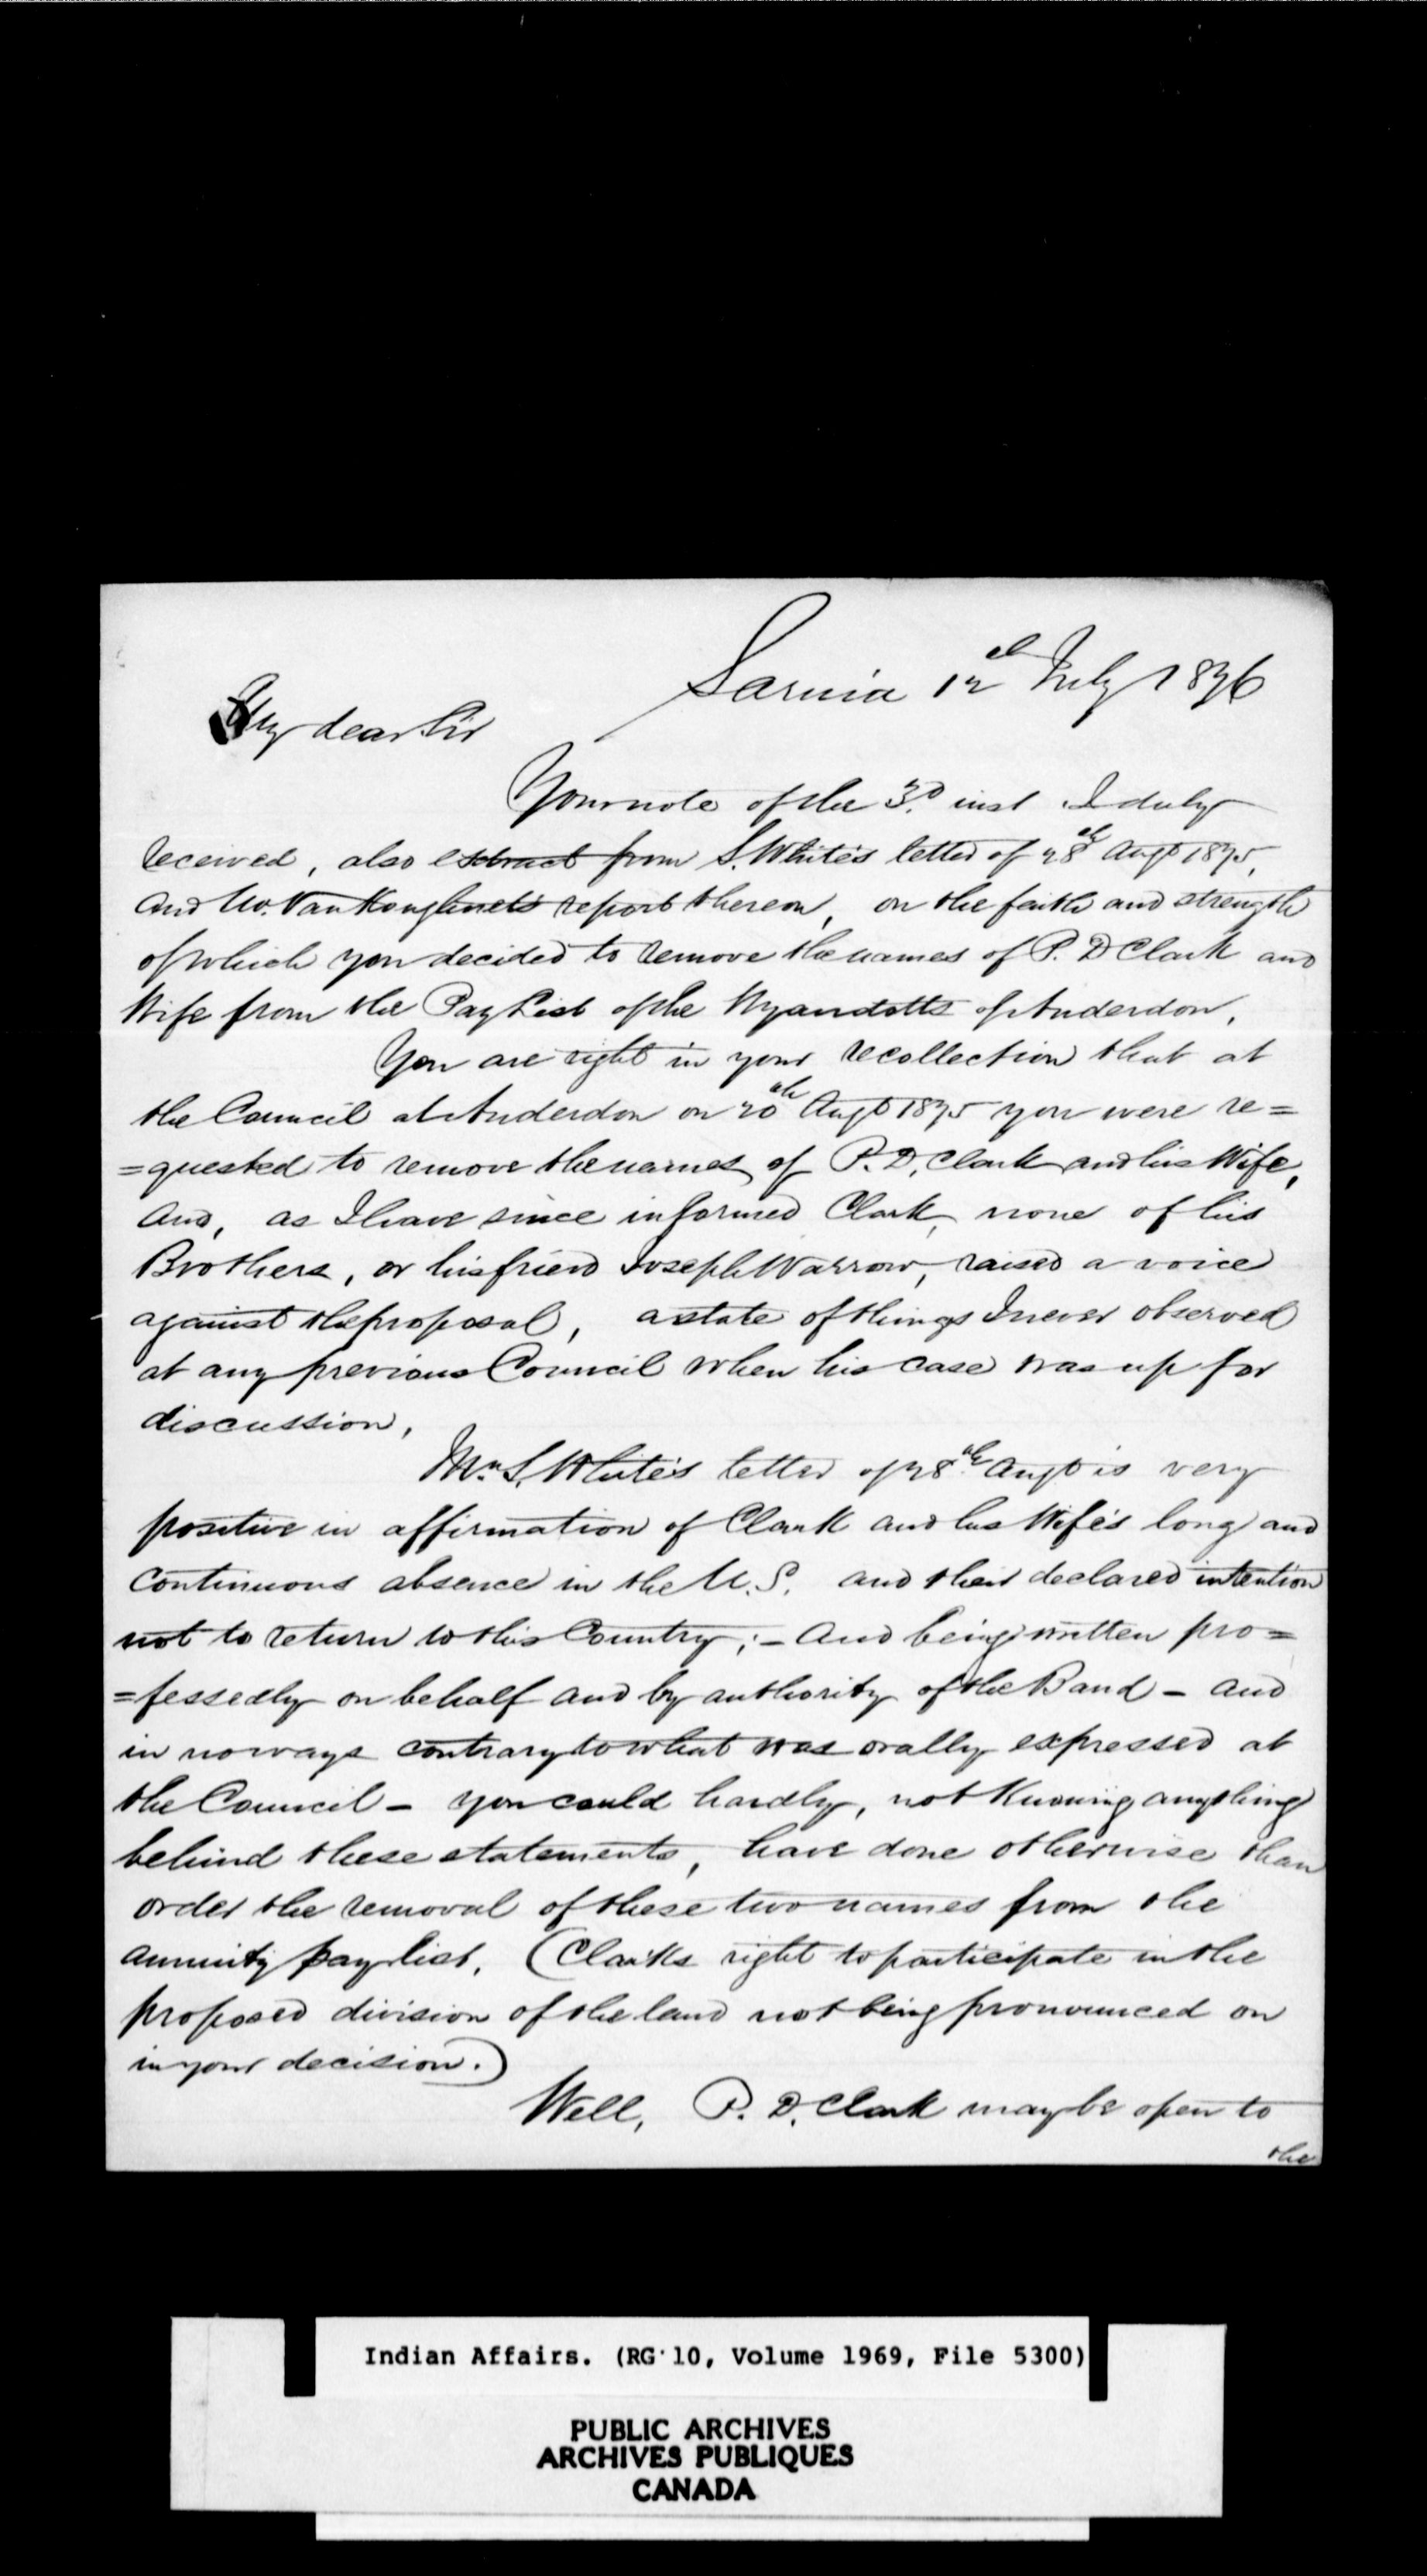 Sarnia 12th July 1876
My dear Sir
Your note of the 3d. inst I duly
received, also extract from S. White's letter of 28th Augt 1875,
and Mr. VanKoughnet's report thereon, on the faith and strength
of which you decided to remove the names of P. D Clark and
Wife from the Pay List of the Wyandotts of Anderdon.
You are right in your recollection that at
the Council at Anderdon on 20th Augt 1875 you were re=
=quested to remove the names of P. D. Clark and his Wife,
And, as I have since informed Clark, none of his
Brothers, or his friend Joseph Warrow, raised a voice
against the proposal, a state of things I never observed
at any previous Council when his case was up for
discussion.
Mr. S. White's letter of 28th. Augt is very
positive in affirmation of Clark and his Wife's long and
continuous absence in the U.S. and their declared intention
not to return to this Country; - And being written pro=
=fessedly on behalf and by authority of the Band - and
in noways contrary to what was orally expressed at
the Council - you could hardly, not knowing anything
behind these statements, have done otherwise than
order the removal of these two names from the
annuity pay list. (Clark's right to participate in the
proposed division of the land not being pronounced on
in your decision.)
Well, P. D. Clark may be open to
the
Indian Affairs. (RG 10, Volume 1969, File 5300)
PUBLIC ARCHIVES
ARCHIVES PUBLIQUES
CANADA